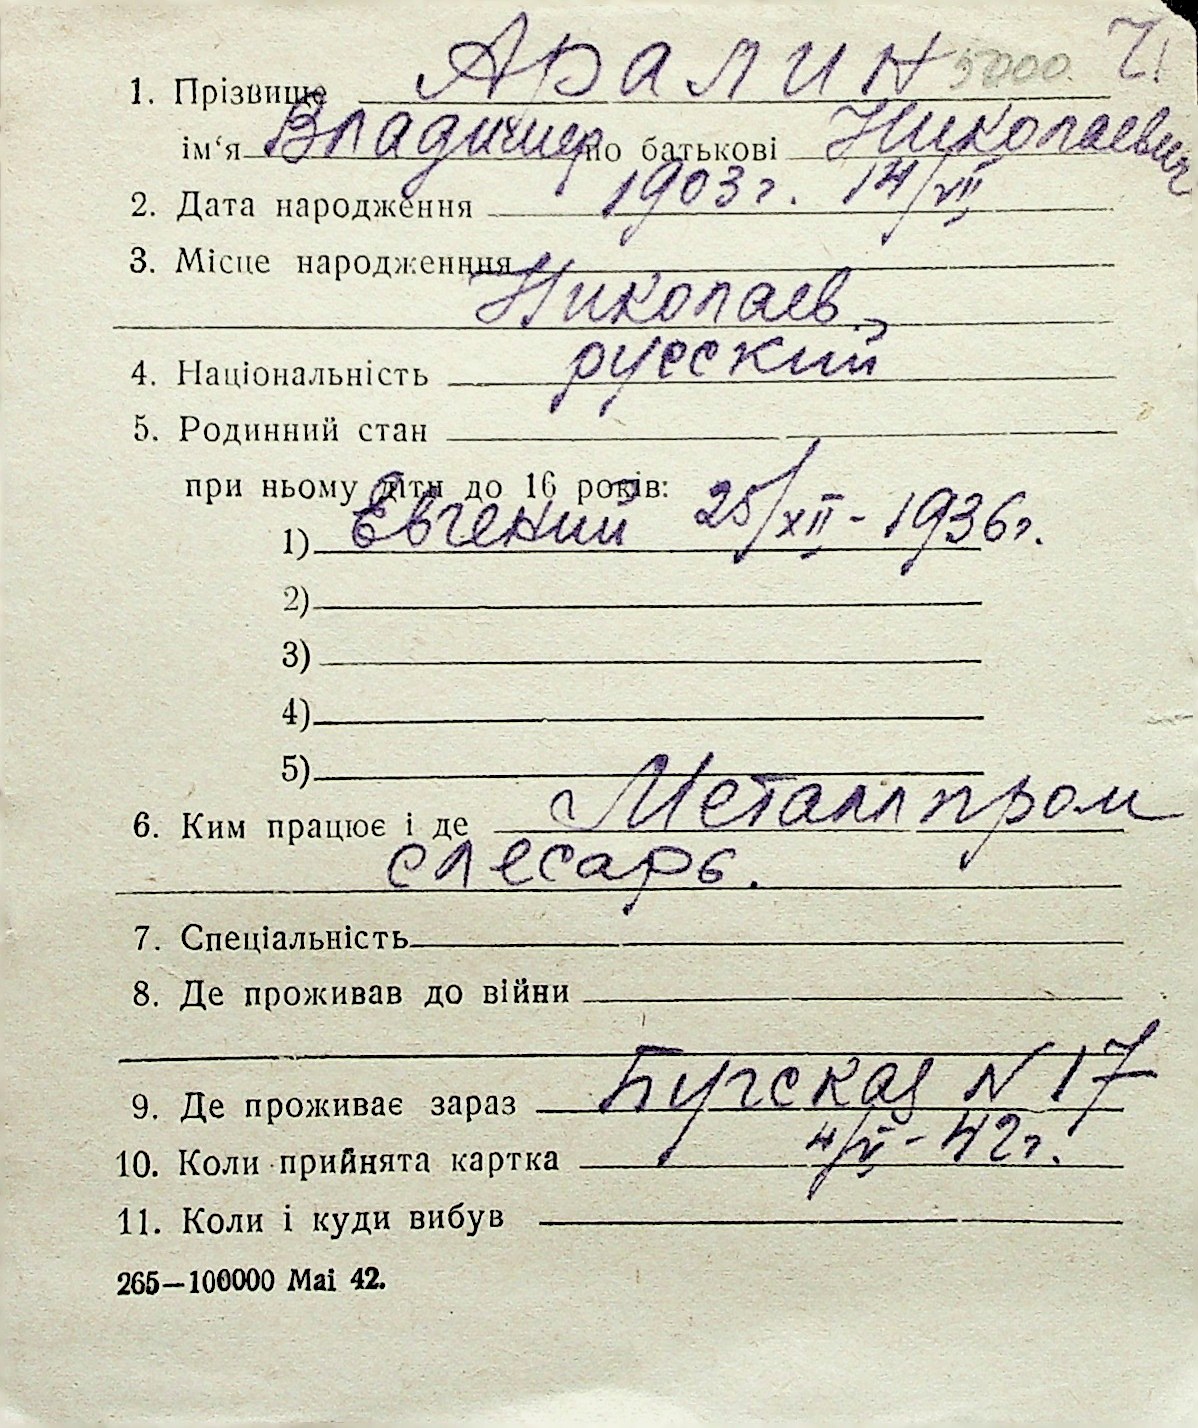 1. Прізвище Аралин 5000.
ім‘я Владимир по батькові Николаевич
2. Дата народження 1903г. 14/VII
3. Місце народженння
Николаев,
4. Національність русский
5. Родинний стан
при ньому діти до 16 років:
1) Евгений 25/XII - 1936г.
2)
3)
4)
5)
6. Ким працює і де Металлпром
слесарь.
7. Спеціальність
8. Де проживав до війни
9. Де проживає зараз Бугская N 17
10. Коли прийнята картка 4/V - 42г.
11. Коли і куди вибув
265—100000 Mai 42.